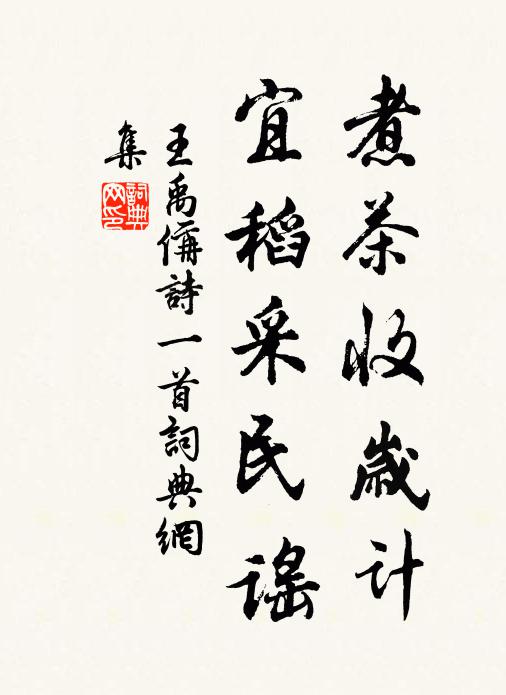 煮茶收歲计
宜稻采民謡
王禹偁詩一首詞典網
集
詞典
网印